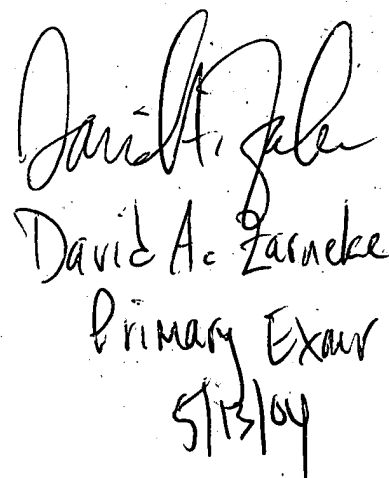 David A. Zarneke
David A. Zarneke
Primary Exmr
5/13/04